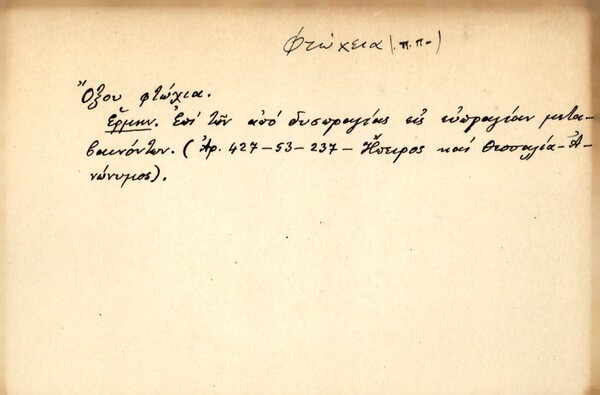 Φτώχεια (π.π.)
Ὄξου φτώχια.
Ἑρμην. Ἐπί τῶν ἀπό δυσπραγίας εἰς εὐπραγίαν μετα-
βαινόντων. (Ἀρ. 427-53-237- Ἤπειρος καί Θεσσαλία-Ἀ-
νώνυμος).